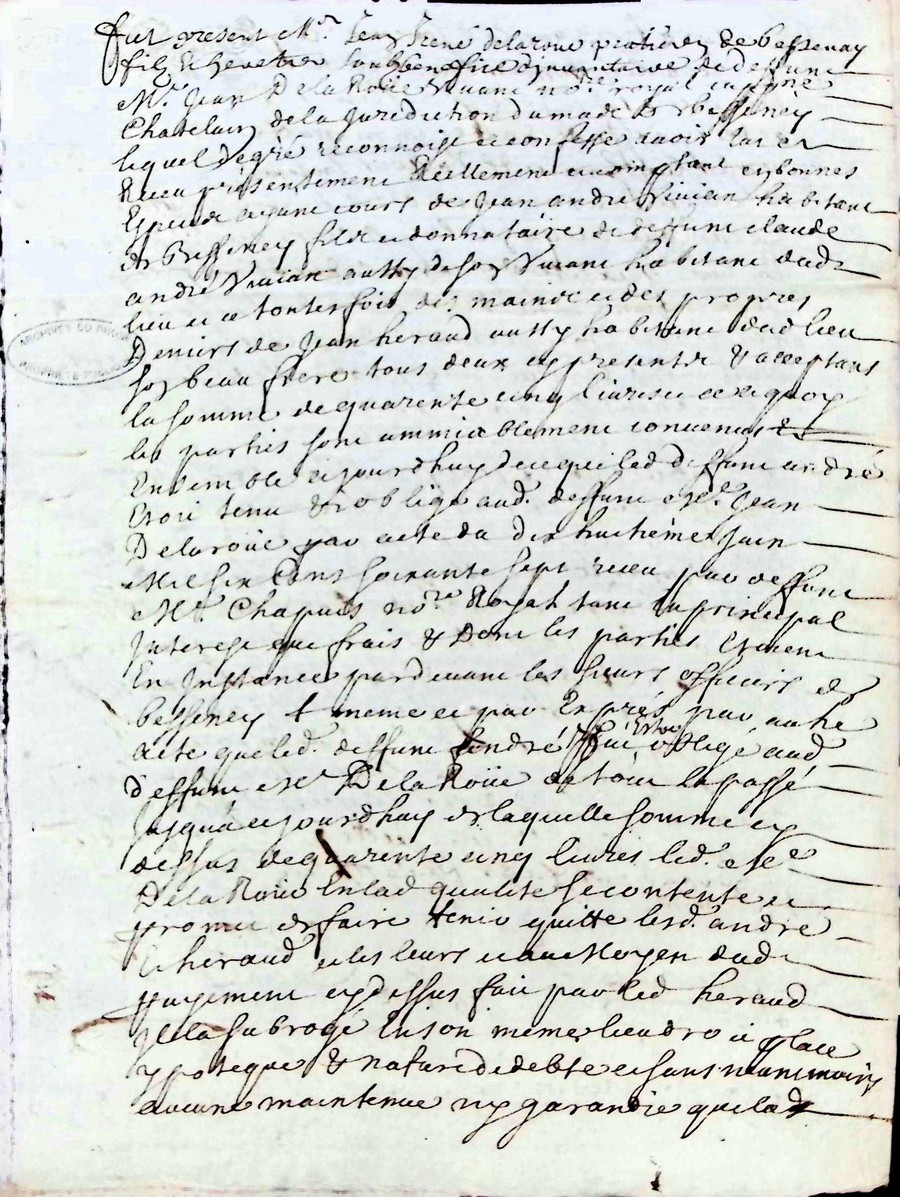 fut present Mr. Jean Irené delaroue praticien de bessenay
filz & heretier soubz benefice d'inventaire de deffunt
Mr. Jean De la Roüe vivant nore. royal
Chatelain de la Juridiction du
lequel de gré reconnoist et confesse avoir
Receu presentement Reellement et comptant en bonnes
Espece ayant cours de Jean andré Vivian habitant
de Besseney filz et donnataire de deffunt claude
andré Vivian aussy de son Vivant habitant dud.
lieu et ce toutesfois des mains et des propres
Deniers de Jean heraud aussy habitant dud lieu
son beau frere tous deux cy presents & acceptans
la somme de quarente cinq livres a quoy
les parties sont ammiablement convenues
Ensemble cejourdhuy de ce que led deffunt andré
Etoit tenu & obligé aud. deffunt Me. Jean
Delaroüe par acte du dix huitiéme Juin
Mil six Cens soixante sept receu par deffunt
Me. Chapuis nore. Royal tant en principal
Interest que frais & Dont les parties Etoient
En Instance pardevant les sieurs officiers de
besseney & meme et par Exprés par autre
acte que led. deffunt andré Estoit obligé aud.
deffunt Mr. De la Roüe de tout le passé
Jusqua cejourdhuy de laquelle somme cy
dessus de quarente cinq livres led. Me.
De la Roüe En lad qualité se contente et
promet de faire tenir quitte lesd. andré
& heraud et les leurs et au Moyen dud.
payement cy dessus fait par led heraud
Il la subrogé En son meme lieu droit place
ypoteque & nature de debte et sans neantmoins
aucune maintenue ny garandie que lad
ARCHIVES DU RHONE
PROPRIETE PUBLIQUE